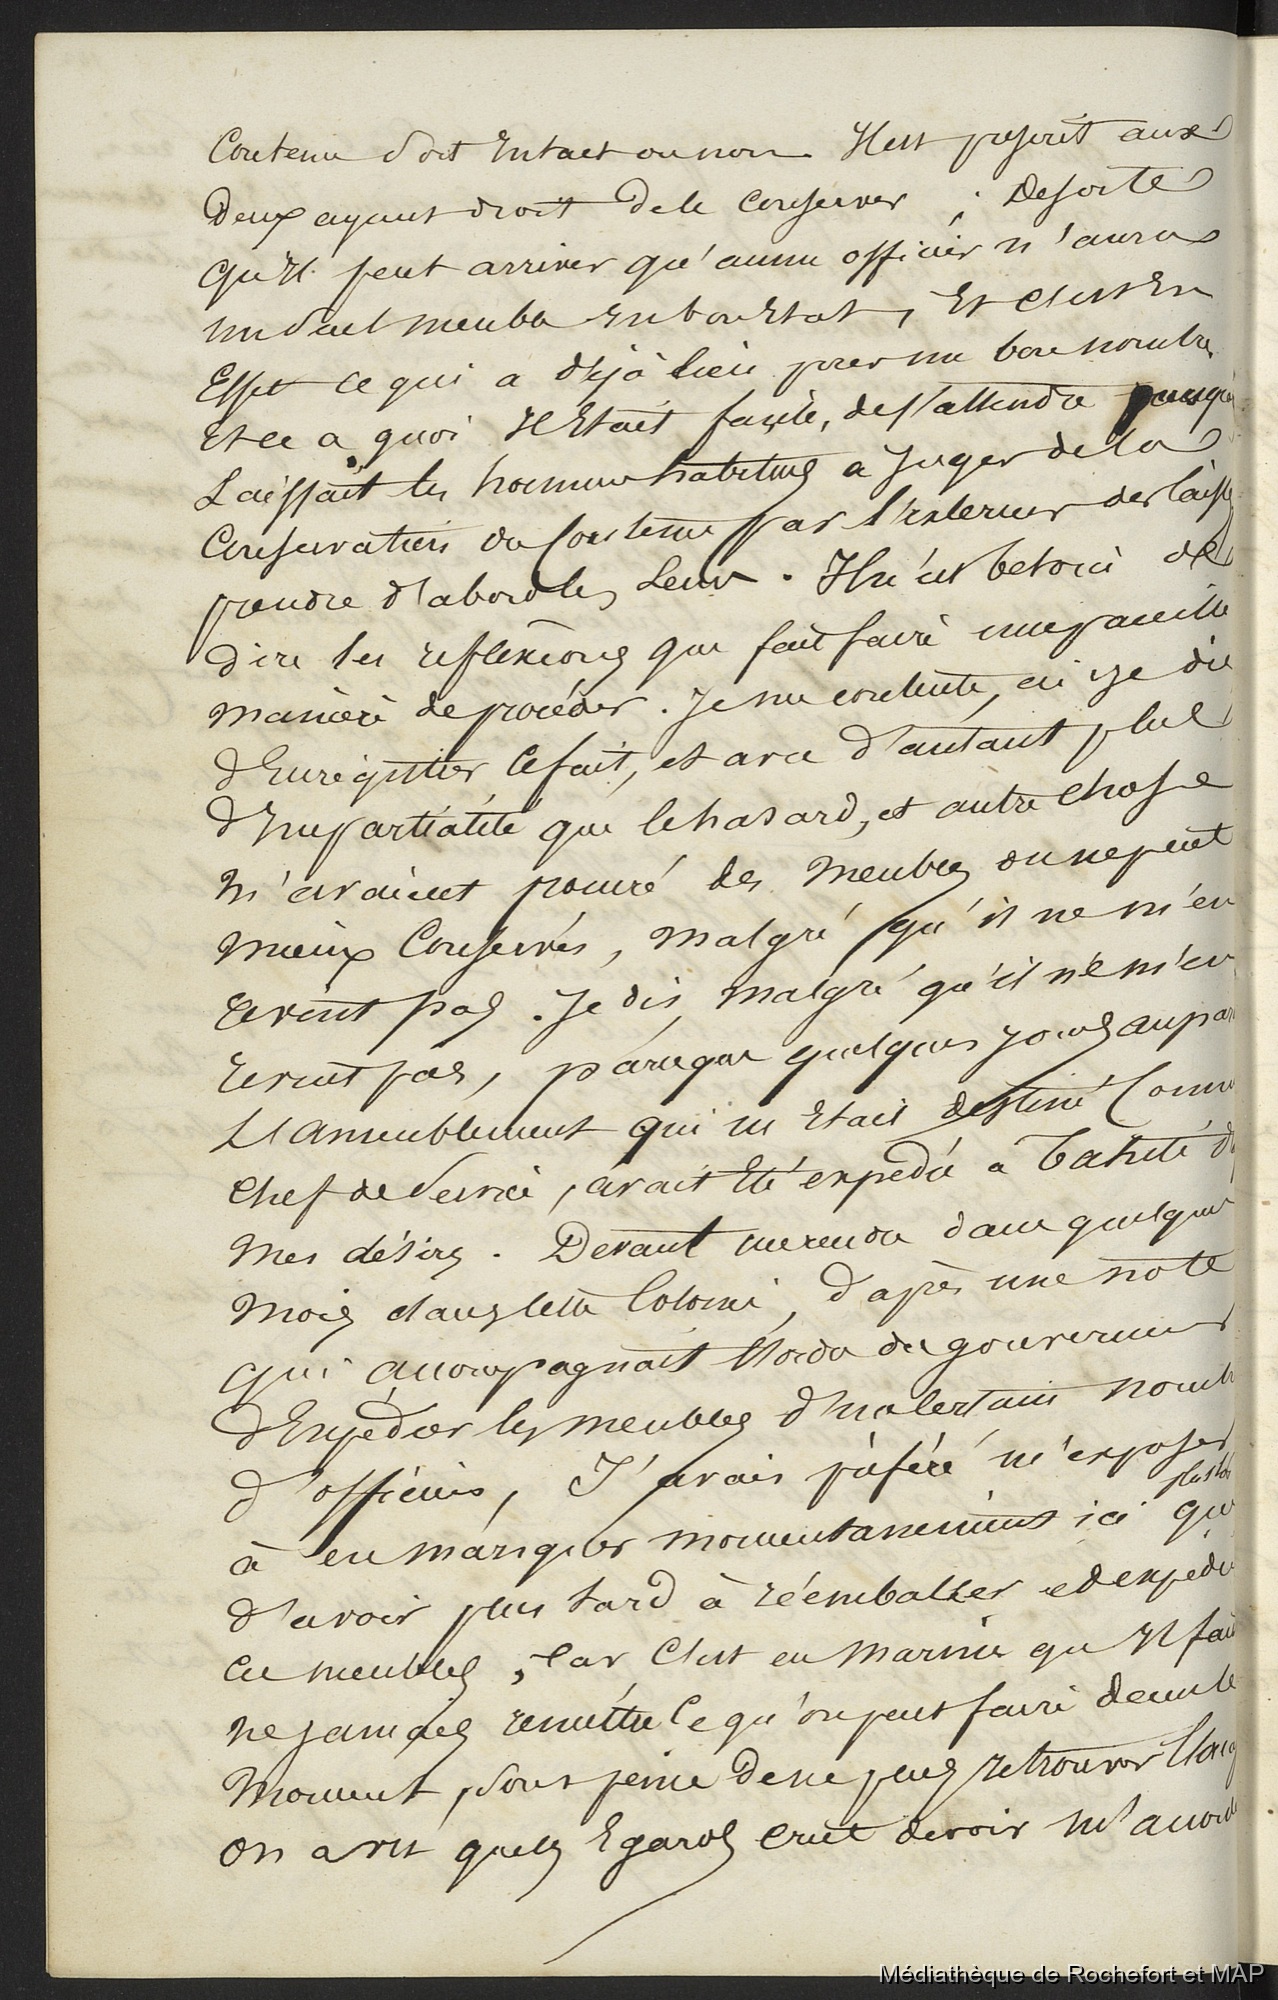 Contenu soit Intact ou non. Il est prescrit aux
Deux ayant droit de le conserver ; De sorte
qu'Il peut arriver qu'aucun officier n'aura
un seul meuble En bon Etat, Et c'est En
Effet ce qui a déjà lieu pour un bon nombre
Et ce a quoi Il Etait facile, de s'attendre puisqu'
Laissait les hommes habitués a Juger de la
Conservation du Contenu par l'Exterieur des caisses
prendre d'abord les Leurs. Il n'est besoin de
dire les reflexions que fait faire une pareille
manière de procéder. Je me contente, ai-je dit
d'Enregistrer ce fait, et avec d'autant plus
d'Impartialité que le hasard, et autre chose
m'avaient procuré des meubles on ne peut
mieux Conservés, malgré qu'il ne m'en
revint pas. Je dis, malgré qu'il ne m'en
revint pas, parceque quelques Jours aupara
L'ameublement qui m'Etait destiné Comme
chef de Service, avait Eté expedié à Tahiti d
mes désirs. Devant me rendre dans quelques
mois dans cette Colonie, d'après une note
qui accompagnait l'Ordre du gouverneur
d'Expédier les meubles d'un certain nombre
d'officiers, J'avais préféré m'exposer
à en manquer momentanement ici plustot que
d'avoir plus tard à réemballer et expedier
ces meubles, Car C'est en marine qu'Il faut
ne jamais remettre Ce qu'on peut faire dans le
moment, sous peine de ne plus retrouver l'occas
On a vu quels Egards crut devoir m'accorder
Médiathèque de Rochefort et MAP